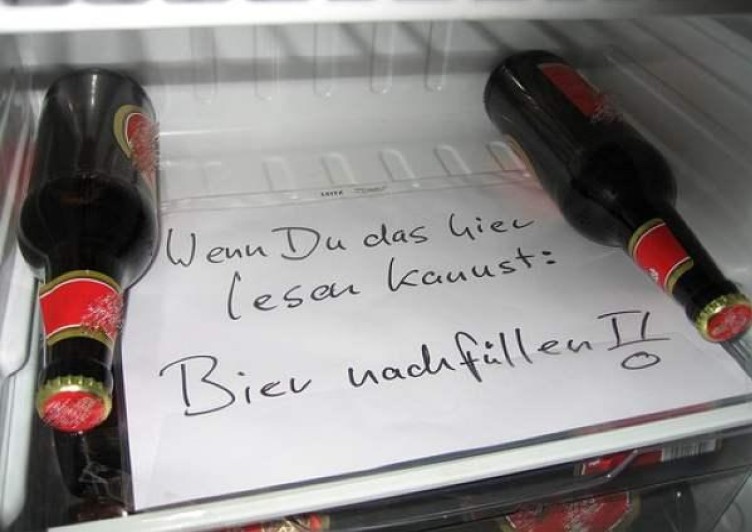 Wenn Du das hier
lesen kannst:
Bier nachfüllen!!